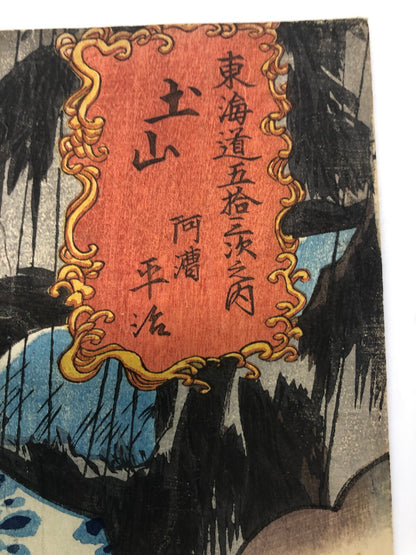 東海道五拾三次之内
土山
阿漕
平治